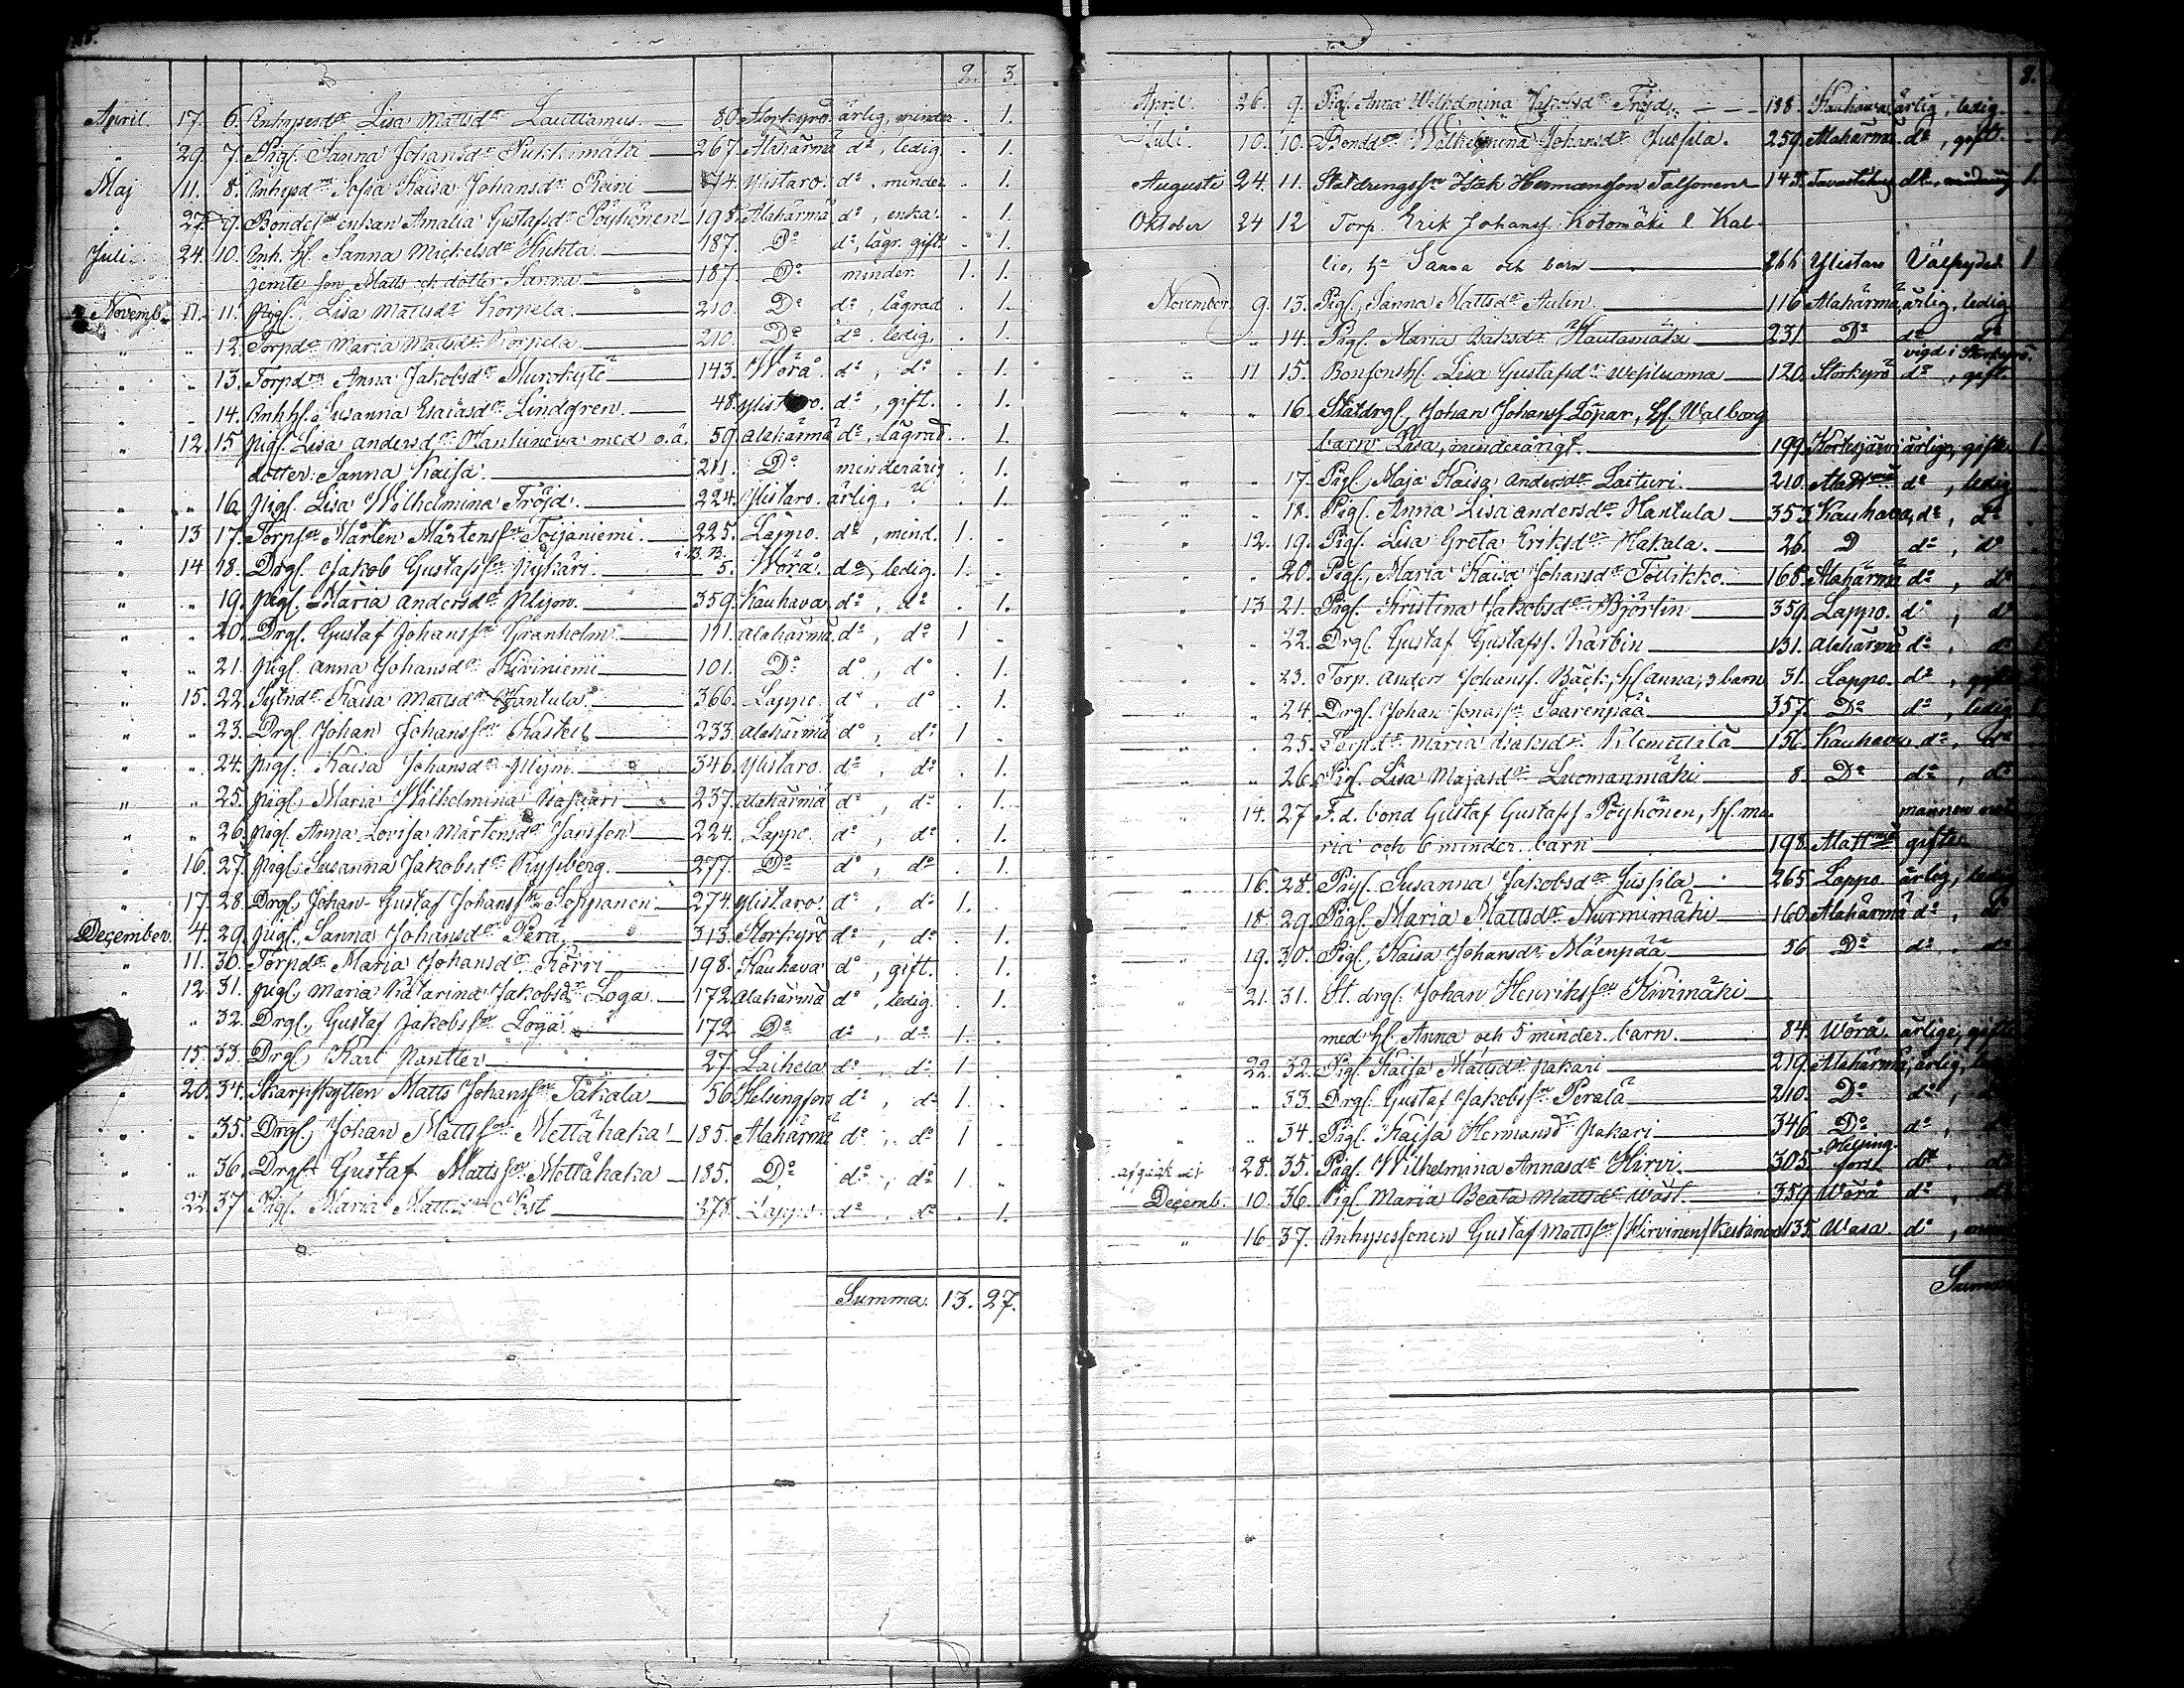 2. 3.
April 17. 6. Inhysesdr Lisa Mattsdr Lauttamus. 80. Storkyro. ärlig, minder . 1.
" 29. 7. Pigl. Sanna Johansdr Pukkimäki 267. Alahärmä do, ledig. . 1.
Maj 11. 8. Inhysdrn Sofia Kaisa Johansdr Reini 174. Ylistaro. do, minder . 1.
" 27. 9. Bondes enkan Amalia Gustafsdr Pöyhönen 198. Alahärmä do, enka. . 1.
Juli 24. 10. Inh. Sanna Mickelsdr Huhta. 187. Do do, lägr. gift . 1.
jemte son Matts och dotter Sanna 187. Do minder. 1. 1.
Novemb. 11. 11. Pigl. Lisa Mattsdr Korpela. 210. Do do, lägrad . 1.
" " 12. Torpdr Maria Mattsdr Korpela. 210. Do do, ledig. . 1.
" " 13. Torpdrn Anna Jakobsdr Murokytö 143. Wörå. do, do . 1.
" " 14. Inhhu Susanna Esaiasdr Lindgren. 48. Ylistaro. do, gift. . 1.
" 12. 15. Pigl. Lisa Andersdr Hantuneva med o.ä. 59. Alahärmä do, lägrad. . 1.
dotter Sanna Kaisa. 211. Do minderårig . 1.
" " 16. Pigl. Lisa Wilhelmina Fröjd. 224. Ylistaro. ärlig, " . 1.
" 13 17. Torpsn Mårten Mårtensson Toijaniemi. 225. Lappo. do, mind. 1. .
" 14 18. Drgl. Jakob Gustafsson Nykäri. 5. Wörå. do, ledig. 1. .
" " 19. Pigl. Maria Andersdr Plijon. 359. Kauhava do, do . 1.
" " 20. Drgl. Gustaf Johansson Granholm 111. Alahärmä do, do 1 .
" " 21. Pigl. Anna Johansdr Kiviniemi 101. Do do, do . 1.
" 15. 22. Sytndr Kaisa Mattsdr Hantula 366. Lappo. do, do . 1.
" " 23. Drgl. Johan Johansson Kastell 233. Alahärmä do, do 1 .
" " 24. Pigl. Kaisa Johansdr Plijni 346. Ylistaro. do, do . 1.
" " 25. Pigl. Maria Wilhelmina 237. Alahärmä do, do . 1.
" " 26. Pigl. Anna Lovisa Mårtensdr Jansson 224. Lappo. do, do . 1.
" 16. 27. Pigl. Susanna Jakobsdr Ryssberg. 277. Do do, do . 1.
" 17 28. Drgl. Johan Gustaf Johansson Soppanen. 274. Ylistaro. do, do 1. .
December. 4. 29. Pigl. Sanna Johansdr Perä 313. Storkyro do, do . 1.
" 11. 30. Torpdr Maria Johansdr Körri 198. Kauhava do, gift. . 1.
" 12. 31. Pigl. Maria Katarina Jakobsdr Loga. 172. Alahärmä do, ledig. . 1.
" " 32. Drgl. Gustaf Jakobsson Loga. 172. Do do, do 1. .
" 15. 33. Drgl. Karl Nantler 27. Laihela do, do 1 .
" 20. 34. Skarpskytten Matts Johansson Takala 56. Helsingfors do, do 1. .
" " 35. Drgl. Johan Mattsson Mettähaka 185. Alahärmä do, do 1 .
" " 36. Drgl. Gustaf Mattsson Mettähaka 185. Do do, do 1 .
" 22. 37. Pigl. Maria Mattsdr Post 378. Lappo. do, do . 1.
Summa. 13. 27.
April. 26. 9. Pigl. Anna Wilhelmina Jakobsdr Fröjd. 188. Kauhava ärlig, ledig.
Juli. 10. 10. Bonddr Wilhelmina Johansdr Jussila. 259. Alahärmä do, gift.
Augusti 24. 11. Statdrengssn Isak Hermansson Talsonen 145. Tavastehus 1.
Oktober 24 12 Torp. Erik Johanss. Kotomäki l. Kal-
lio, hu Sanna och barn 266 Ylistaro Välfrejdad 1
November. 9. 13. Pigl. Sanna Mattsdr Aulin. 116. Alahärmä, ärlig, ledig
" " 14. Pigl. Maria Isaksdr Hautamäki 231 Do do do
vigd i Storkyro.
" 11 15. Bonsonshu Lisa Gustafsdr Wesiluoma 120. Storkyrö do, gift.
" " 16. Statdrgl. Johan Johanss. Löpar, hu Walborg
barn Lisa, minderårig. 199. Kortesjärvi ärliga, gifta 1.
" " 17. Pigl. Maja Kaisa Andersdr Laituri. 210. do, ledig
" " 18. Pigl. Anna Lisa Andersdr Hantula 353. Kauhava, do, do
" 12. 19. Pigl. Lisa Greta Eriksdr Hakala. 26. D do, do
" " 20. Pigl. Maria Kaisa Johansdr Töllikko. 168. Alahärmä do, do
" 13 21. Pigl. Kristina Jakobsdr Björlin 359. Lappo. do, do
" " 22. Drgl. Gustaf Gustafss. Karbin 131. Alahärmä do, do
" " 23. Torp. Anders Johanss. Bäck, hu Anna, 3 barn 31. Lappo. do, gift
" " 24. Drgl. Johan Jonasson Saarenpää 357. Do do, ledig
" " 25. Torpdr Maria Isaksdr Klemettilä 156. Kauhava do, do
" " 26. Pigl. Lisa Majasdr Luomanmäki 8. Do do, do
" 14. 27 F.d. bond Gustaf Gustafss Pöyhönen, hu Ma- mannen
ria och 6 minder. barn 198. gifta
" 16. 28. Pigl. Susanna Jakobsdr Jussila 265. Lappo ärlig, ledig
" 18 29. Pigl. Maria Mattsdr Nurmimäki 160. Alahärmä do, do
" 19. 30. Pigl. Kaisa Johansdr Mäenpää 56. Do do, do
" 21. 31. St. drgl. Johan Henriksson Kivimäki
med hu Anna och 5 minder. barn. 84. Wörå. ärliga, gifta
" 22. 32. Pigl. Kaisa Mattsdr Pakari 219. Alahärmä, ärlig,
" " 33. Drgl. Gustaf Jakobsson Perälä 210. Do do,
" " 34. Pigl. Kaisa Hermansdr Pakari 346. Do do,
28. 35. Pigl. Wilhelmina Annasdr Hirvi. 305. Helsingfors do,
Decemb. 10. 36. Pigl. Maria Beata Mattsdr Wäst. 359. Wörå do, do
" 16 37. Inhysessonen Gustaf Mattsson /Hirvinen/ Keskinen 135. Wasa. do,
Summa